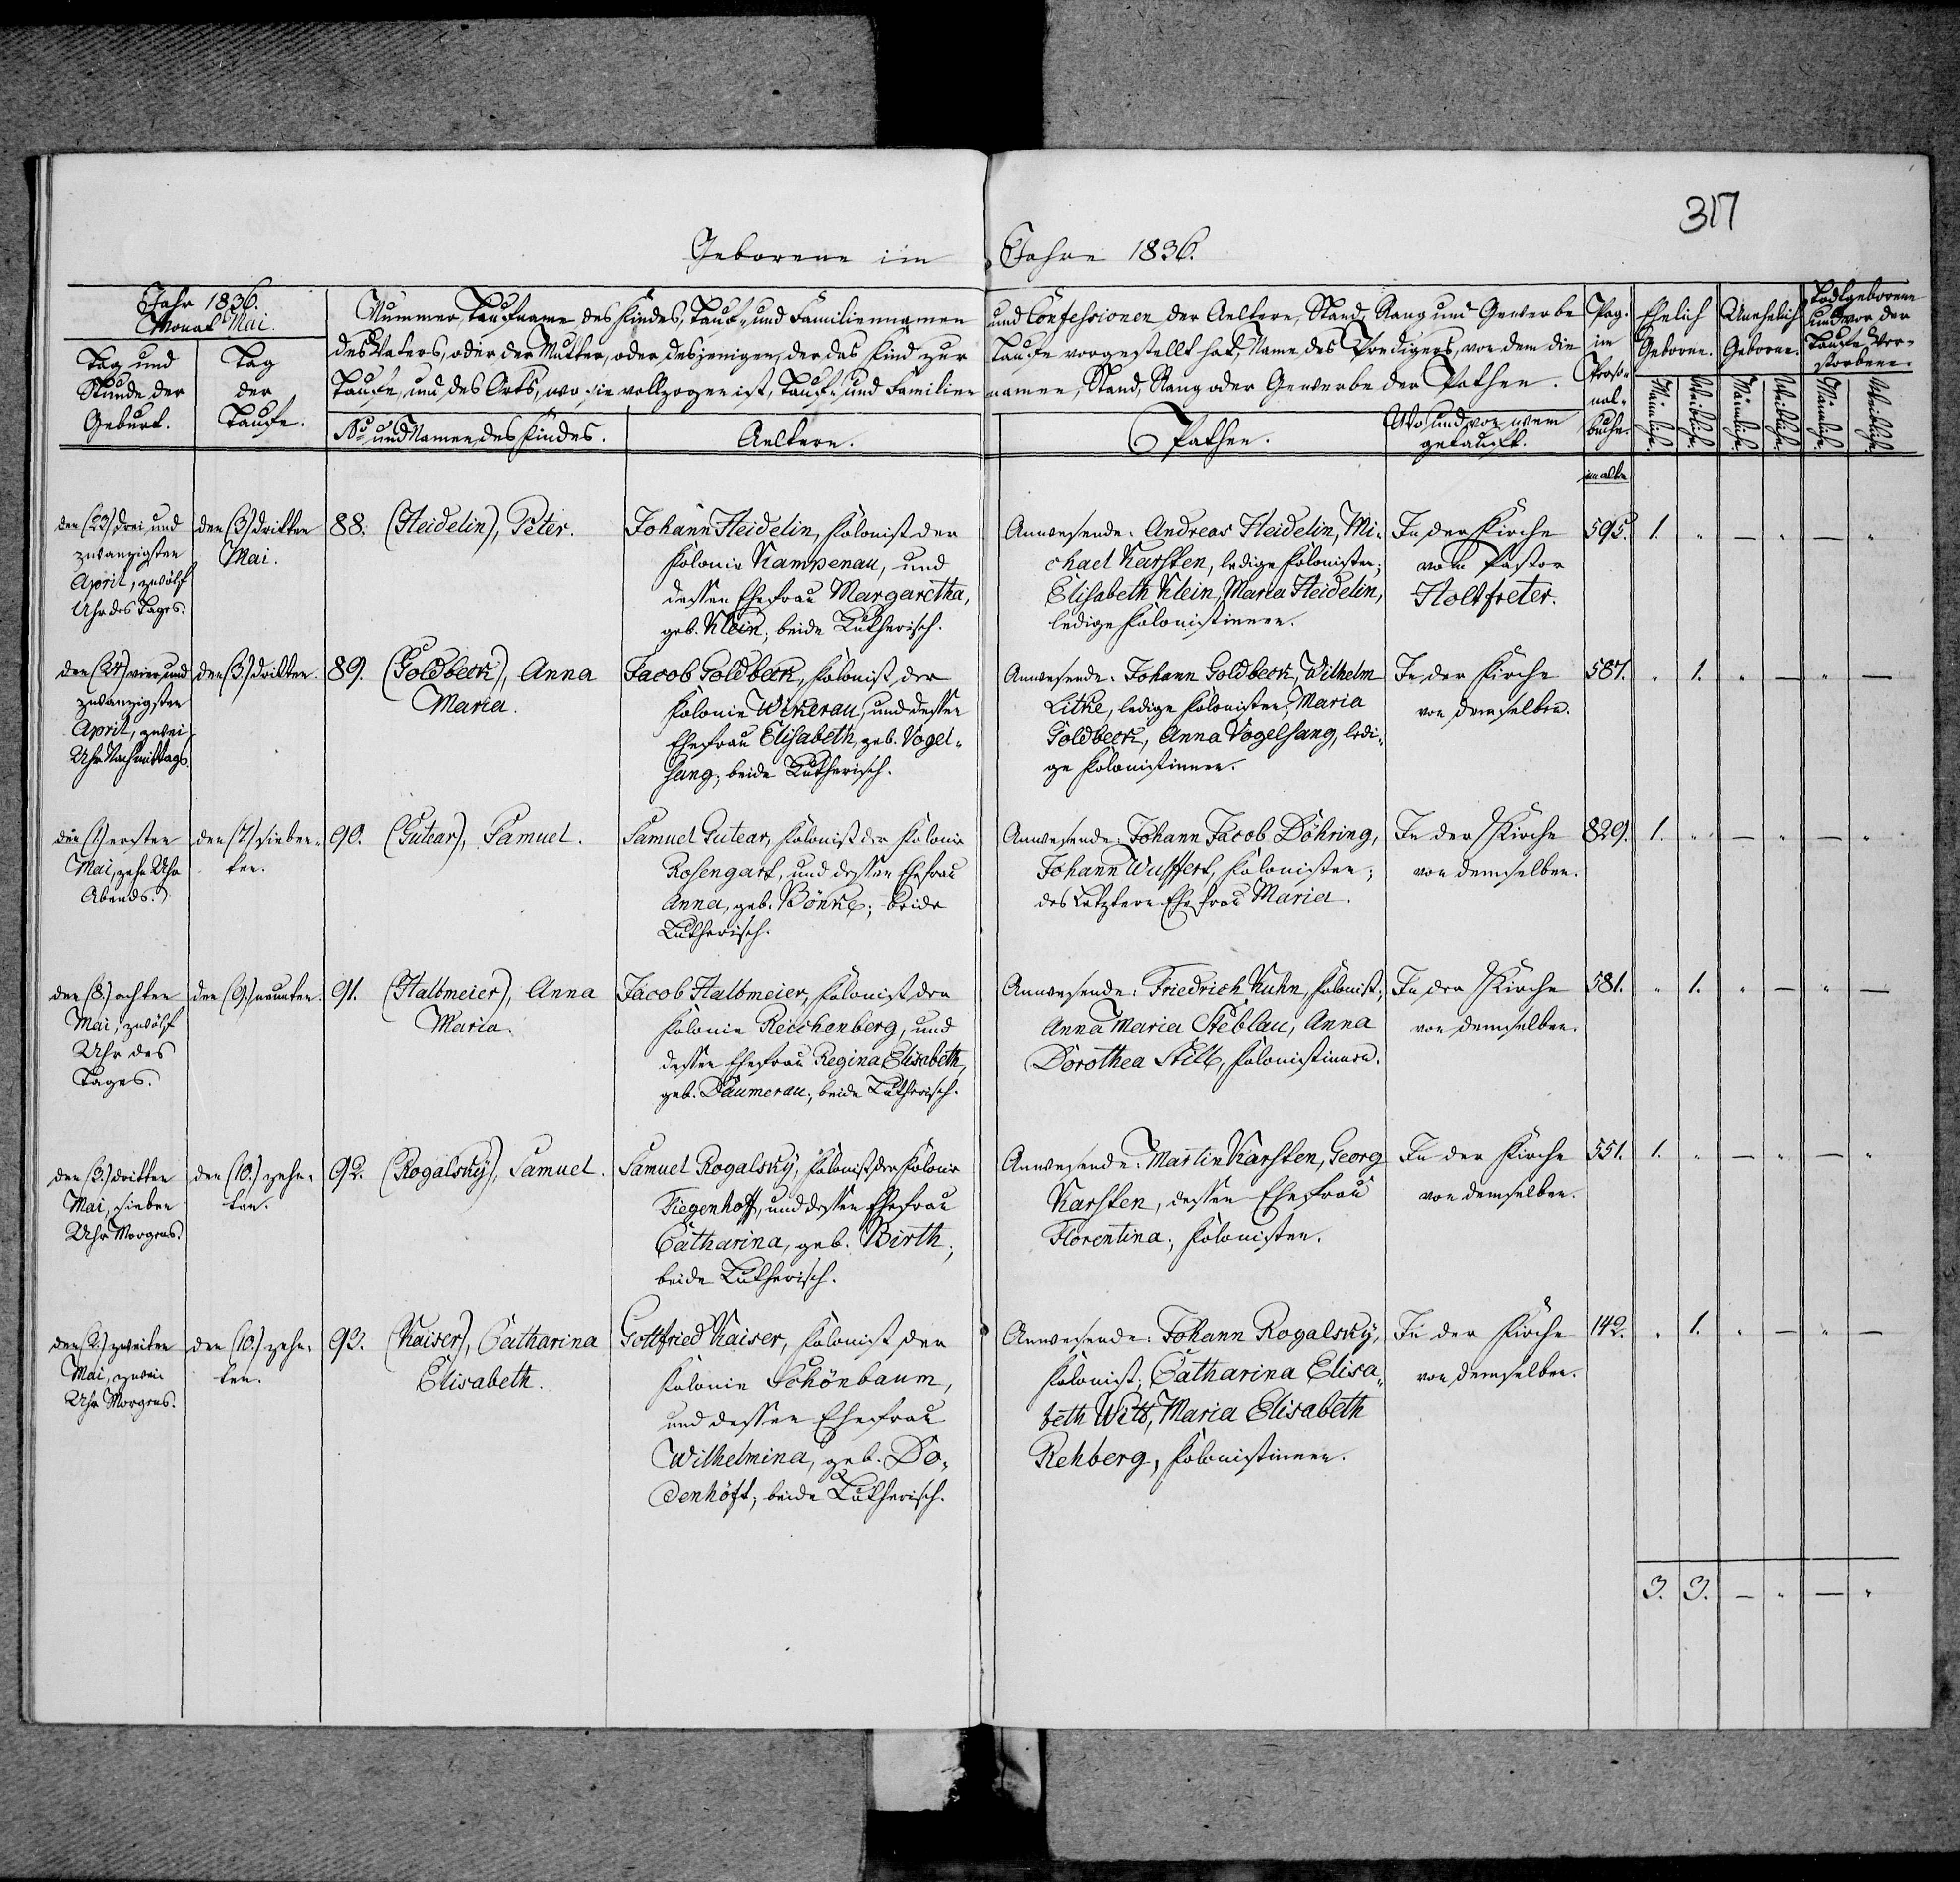 317
Geborene im Jahre 1836.
Jahr 1836.
Monat Mai.
Tag und
Stunde der
Geburt.
Tag
der
Taufe.
Nummer, Taufname des Kindes, Tauf- und Familiennamen
des Vaters, oder der Mutter, oder desjenigen, der das Kind zur
Taufe, und des Orts, wo sie vollzogen ist, Tauf- und Familien
No. und Namen des Kindes.
Aeltern.
und Confessionen der Aeltern, Stand, Rang und Gewerbe
Taufe vorgestellt hat, Name des Predigers, von dem die
namen, Stand, Rang oder Gewerbe der Pathen.
Pathen.
Wo und von wem
getauft.
Pag.
im
Perso-
nal-
buche.
im alten
Ehelich
Geborne.
Unehelich
Geborne.
Todtgeborene
und vor der
Taufe Ver-
storbene.
Männliche.
Weibliche.
Männliche.
Weibliche.
Männliche.
Weibliche.
den (23) drei und
zwanzigsten
April, zwölf
Uhr des Tages.
den (3) dritten
Mai.
88. (Heidelin), Peter.
Johann Heidelin, Kolonist der
Kolonie Kampenau, und
dessen Ehefrau Margaretha,
geb. Klein; beide Lutherisch.
Anwesende: Andreas Heidelin, Mi-
chael Karsten, ledige Kolonisten;
Elisabeth Klein, Maria Heidelin,
ledige Kolonistinnen.
In der Kirche
vom Pastor
Holtfreter.
595. 1. " — " — "
den (24) vier und
zwanzigsten
April, zwei
Uhr Nachmittags.
den (3.) dritten.
89. (Goldbeck), Anna
Maria.
Jacob Goldbeck, Kolonist der
Kolonie Wikerau, und dessen
Ehefrau Elisabeth, geb. Vogel-
sang; beide Lutherisch.
Anwesende: Johann Goldbeck, Wilhelm
Litke, ledige Kolonisten; Maria
Goldbeck, Anna Vogelsang, ledi-
ge Kolonistinnen.
In der Kirche
von demselben.
587. " 1. " — " —
den (1) ersten
Mai, zehn Uhr
Abends.
den (7) sieben-
ten.
90. (Gutear), Samuel.
Samuel Gutear, Kolonist der Kolonie
Rosengart, und dessen Ehefrau
Anna, geb. Bönke; beide
Lutherisch.
Anwesende: Johann Jacob Döhring,
Johann Wuffert, Kolonisten;
des Letztern Ehefrau Maria.
In der Kirche
von demselben.
829. 1. " — " — "
den (8.) achten
Mai, zwölf
Uhr des
Tages.
den (9.) neunten.
91. (Halbmeier), Anna
Maria.
Jacob Halbmeier, Kolonist der
Kolonie Reichenberg, und
dessen Ehefrau Regina Elisabeth,
geb. Daumerau; beide Lutherisch.
Anwesende: Friedrich Kuhn, Kolonist;
Anna Maria Steblau, Anna
Dorothea Still, Kolonistinnen.
In der Kirche
von demselben.
581. " 1. " — " —
den (3.) dritten
Mai, sieben
Uhr Morgens.
den (10.) zehn-
ten.
92. (Rogalsky), Samuel.
Samuel Rogalsky, Kolonist der Kolonie
Tiegenhoff, und dessen Ehefrau
Catharina, geb. Birth;
beide Lutherisch.
Anwesende: Martin Karsten, Georg
Karsten, dessen Ehefrau
Florentina; Kolonisten.
In der Kirche
von demselben.
551. 1. " — " — "
den (2.) zweiten
Mai, zwei
Uhr Morgens.
den (10.) zehn-
ten.
93. (Kaiser), Catharina
Elisabeth.
Gottfried Kaiser, Kolonist der
Kolonie Schönbaum,
und dessen Ehefrau
Wilhelmina, geb. Do-
denhöft; beide Lutherisch.
Anwesende: Johann Rogalsky,
Kolonist; Catharina Elisa-
beth Witt, Maria Elisabeth
Rehberg, Kolonistinnen.
In der Kirche
von demselben.
142. " 1. " — " —
3. 3. — " — "